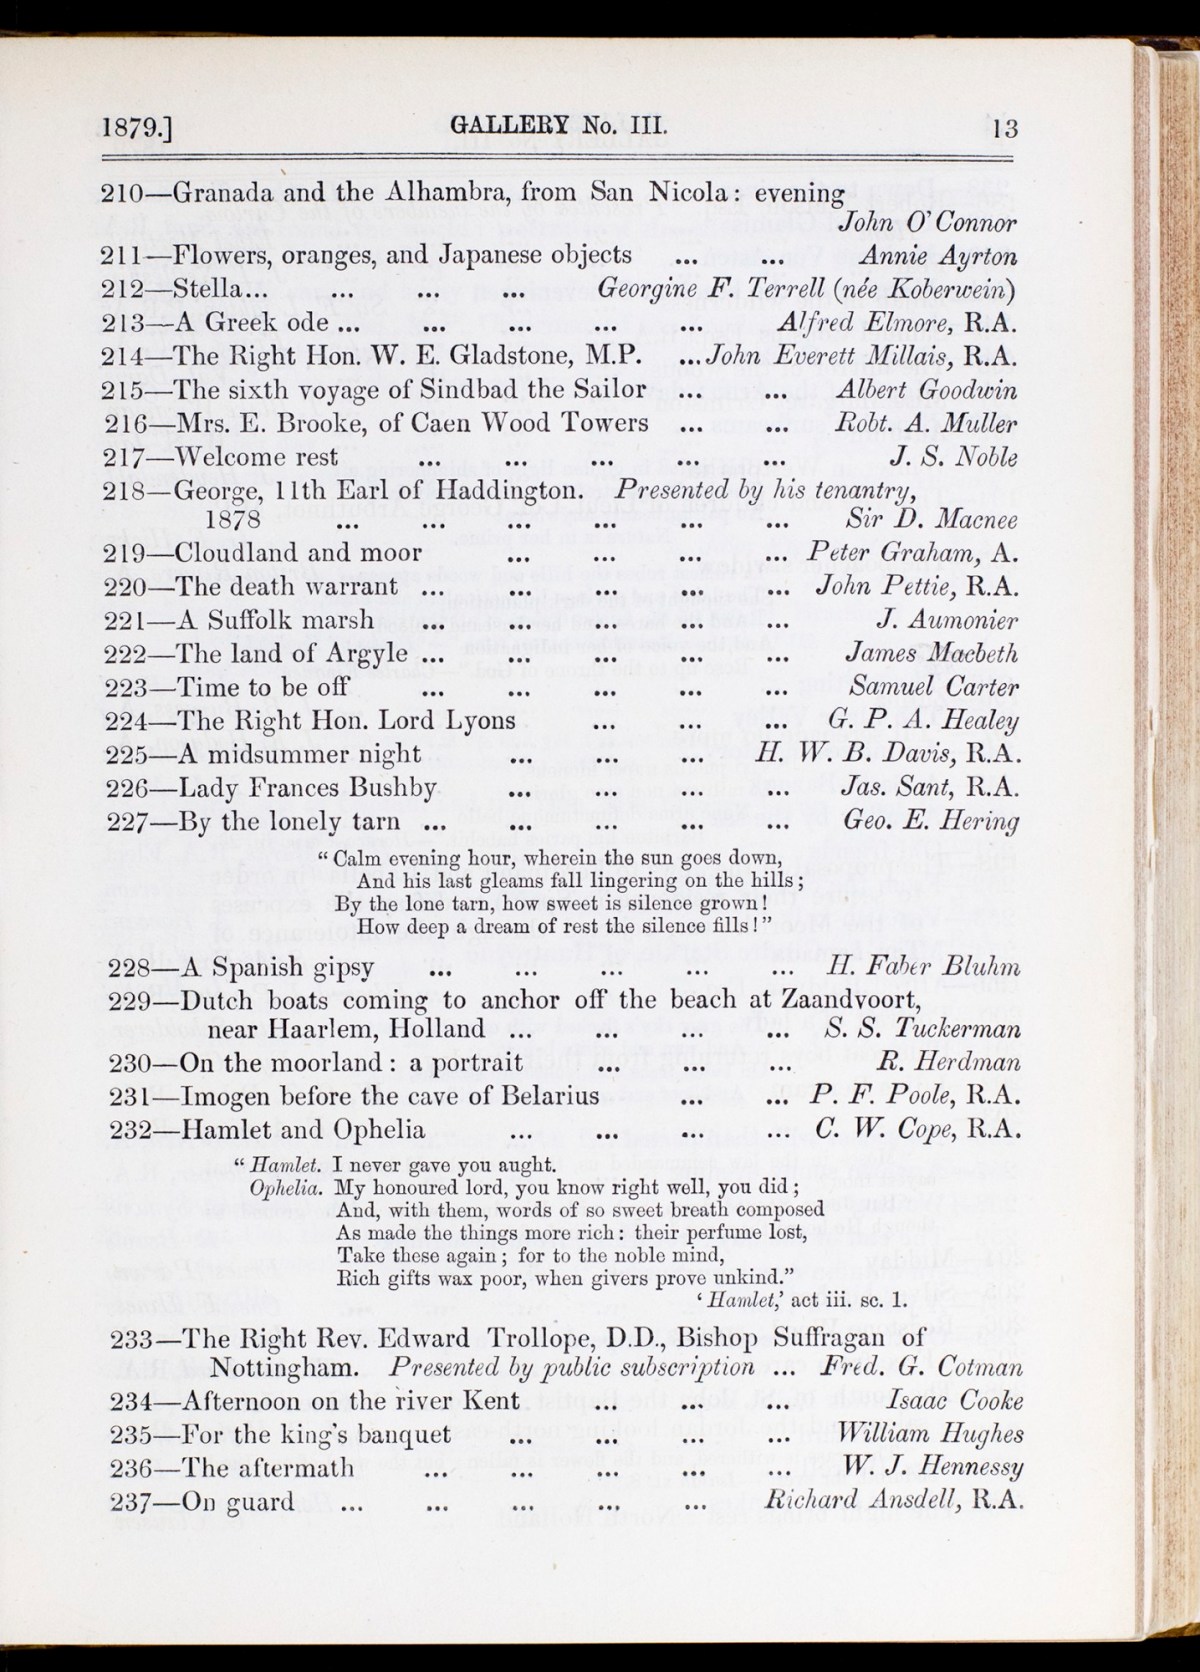 1879.] GALLERY No. III. 13
210—Granada and the Alhambra, from San Nicola: evening
John O'Connor
211—Flowers, oranges, and Japanese objects ... ... Annie Ayrton
212—Stella... ... ... ... Georgine F. Terrell (née Koberwein)
213—A Greek ode ... ... ... ... ... Alfred Elmore, R.A.
214—The Right Hon. W. E. Gladstone, M.P. ...John Everett Millais, R.A.
215—The sixth voyage of Sindbad the Sailor ... ... Albert Goodwin
216—Mrs. E. Brooke, of Caen Wood Towers ... ... Robt. A. Muller
217—Welcome rest ... ... ... ... ... J. S. Noble
218—George, 11th Earl of Haddington. Presented by his tenantry,
1878 ... ... ... ... ... ... Sir D. Macnee
219—Cloudland and moor ... ... ... ... Peter Graham, A.
220—The death warrant ... ... ... ... ... John Pettie, R.A.
221—A Suffolk marsh ... ... ... ... ... J. Aumonier
222—The land of Argyle ... ... ... ... ... James Macbeth
223—Time to be off ... ... ... ... ... Samuel Carter
224—The Right Hon. Lord Lyons ... ... ... G. P. A. Healey
225—A midsummer night ... ... ... H. W. B. Davis, R.A.
226—Lady Frances Bushby ... ... ... ... Jas. Sant, R.A.
227—By the lonely tarn ... ... ... ... ... Geo. E. Hering
“Calm evening hour, wherein the sun goes down,
And his last gleams fall lingering on the hills;
By the lone tarn, how sweet is silence grown!
How deep a dream of rest the silence fills!”
228—A Spanish gipsy ... ... ... ... ... H. Faber Bluhm
229—Dutch boats coming to anchor off the beach at Zaandvoort,
near Haarlem, Holland ... ... ... ... S. S. Tuckerman
230—On the moorland: a portrait ... ... ... R. Herdman
231—Imogen before the cave of Belarius ... ... P. F. Poole, R.A.
232—Hamlet and Ophelia ... ... ... ... C. W. Cope, R.A.
“Hamlet. I never gave you aught.
Ophelia. My honoured lord, you know right well, you did;
And, with them, words of so sweet breath composed
As made the things more rich: their perfume lost,
Take these again; for to the noble mind,
Rich gifts wax poor, when givers prove unkind.”
‘Hamlet,’ act iii. sc. 1.
233—The Right Rev. Edward Trollope, D.D., Bishop Suffragan of
Nottingham. Presented by public subscription ... Fred. G. Cotman
234—Afternoon on the river Kent ... ... ... Isaac Cooke
235—For the king's banquet ... ... ... ... William Hughes
236—The aftermath ... ... ... ... ... W. J. Hennessy
237—On guard ... ... ... ... ... Richard Ansdell, R.A.